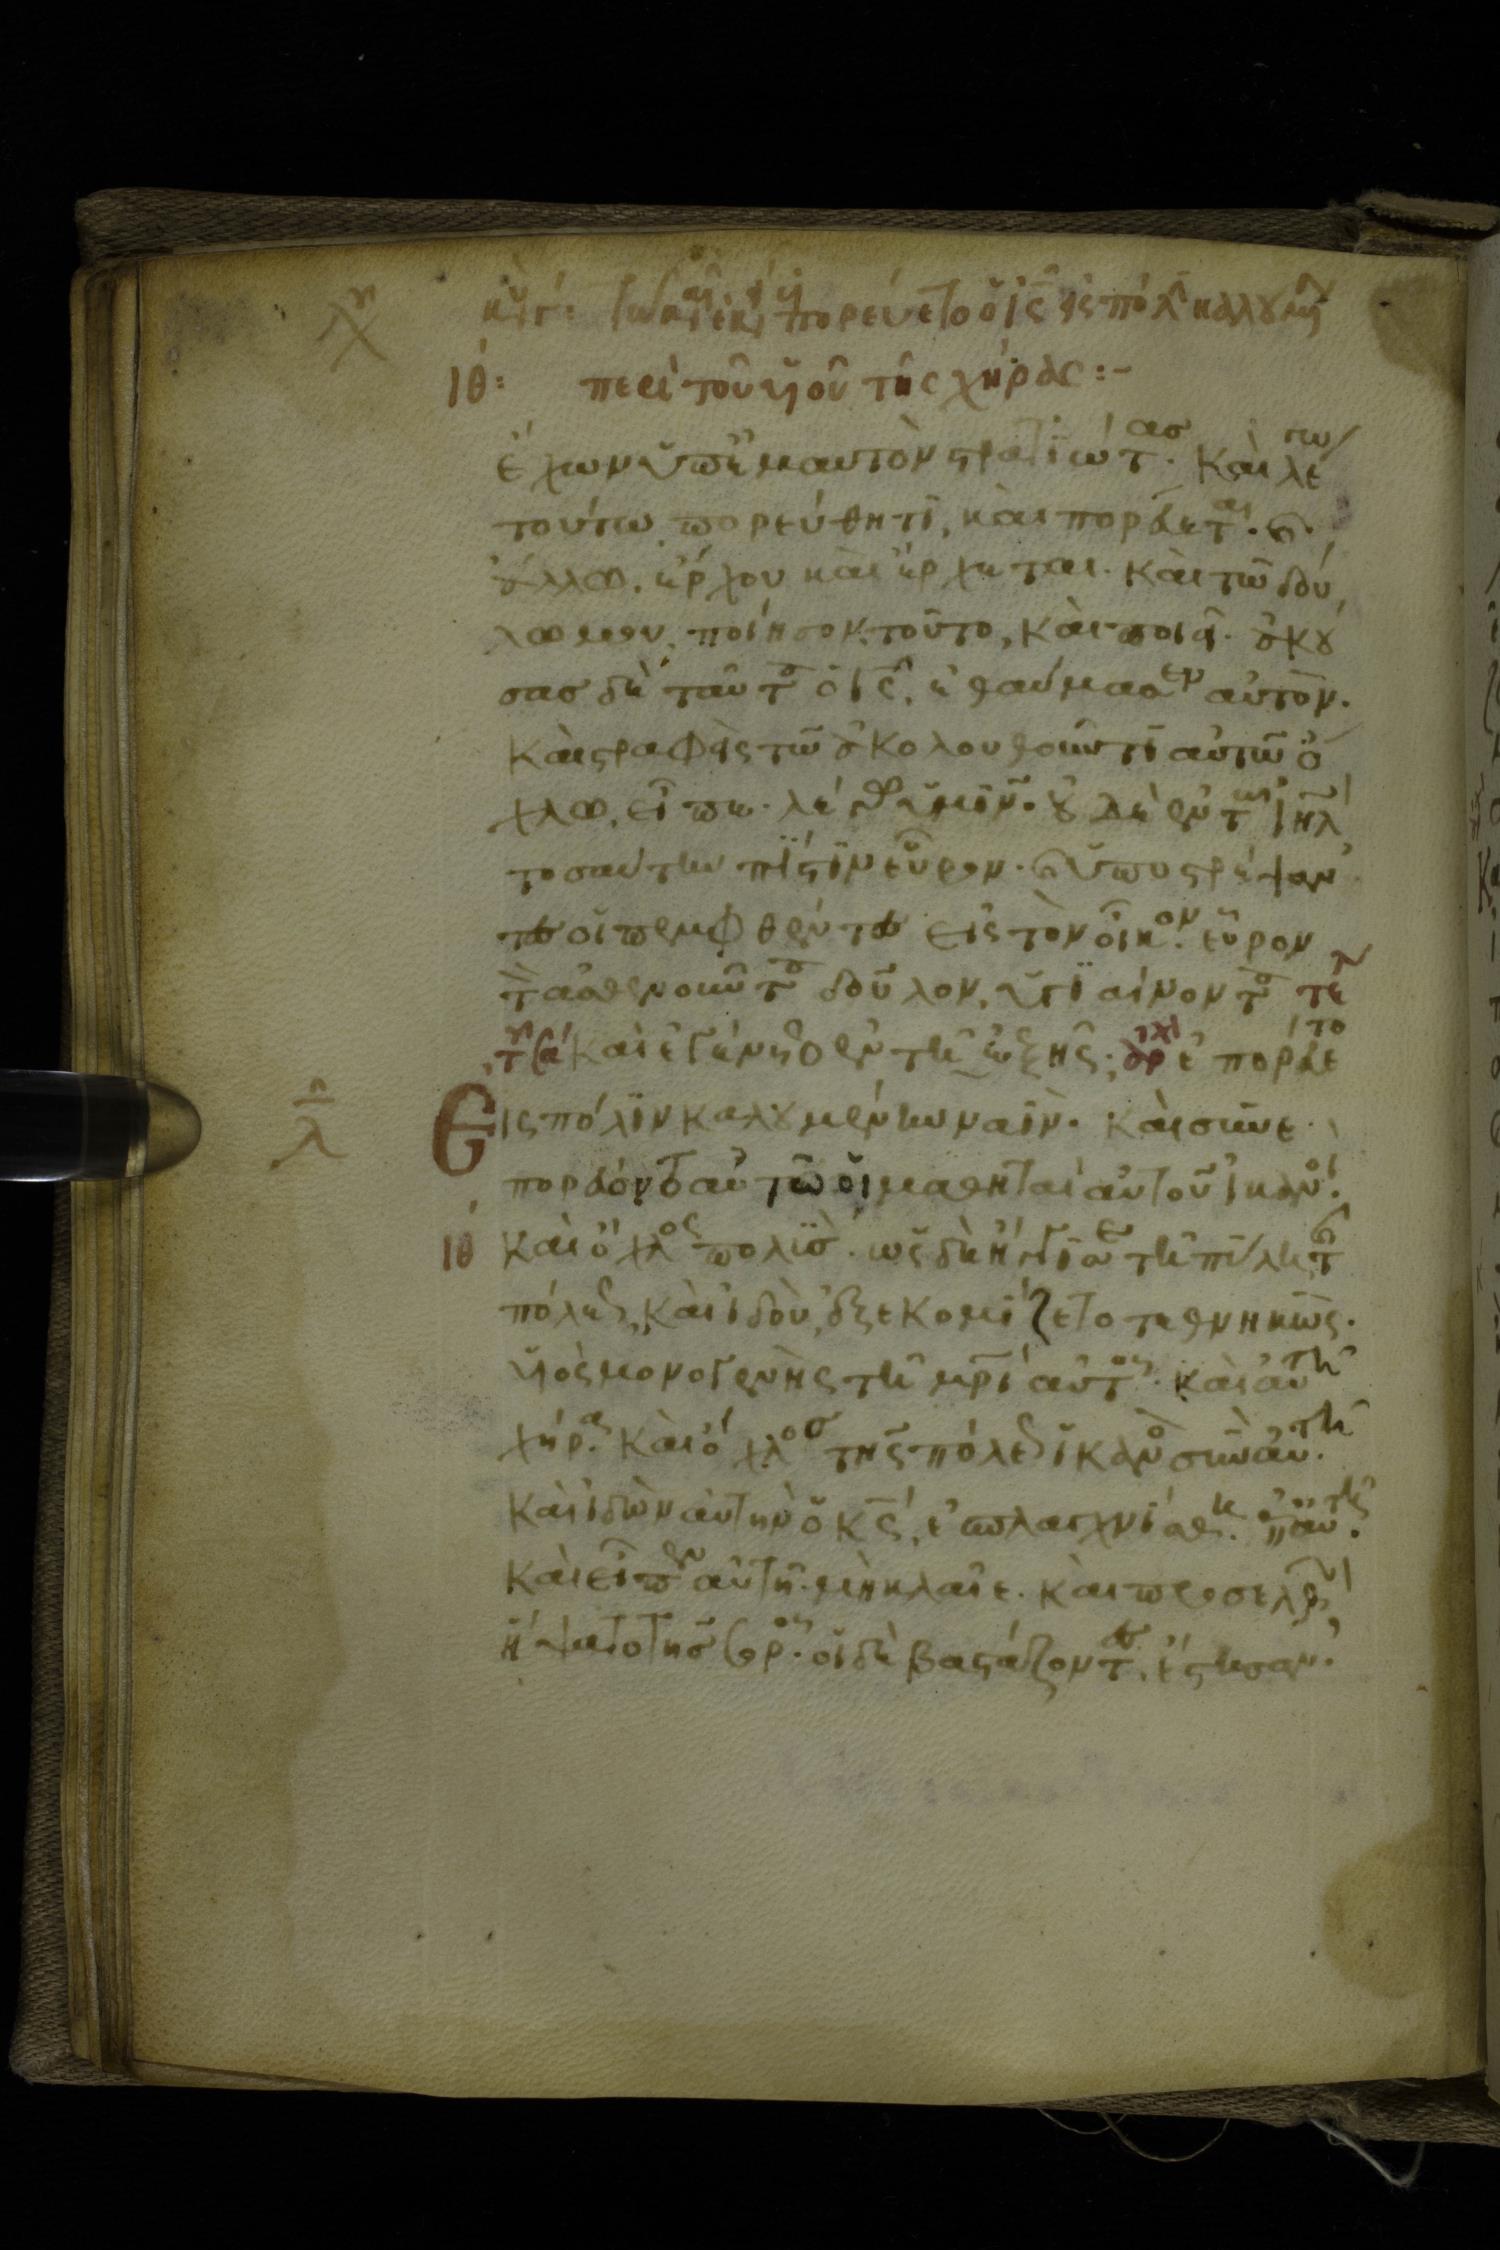 πορεύετο ὁ ις εἰς πόλ καλουμ
ιθ: περὶ τοῦ υἱοῦ τῆς χήρας:-
ἔχων ὑπ ἐμαυτὸν στρατιώτας. καὶ λέγω
τούτω πορεύθητι, καὶ πορεύεται. καὶ
ἄλλω. ἔρχου καὶ ἔρχεται. καὶ τῶ δού
λω μου, ποίησον τοῦτο, καὶ ποιεῖ. ἀκού
σας δὲ ταῦτα ὁ ις, ἐθαύμασεν αὐτόν.
καὶ στραφεὶς τῶ ἀκολουθοῦντι αὐτῶ ὄ
χλω, εἶπε. λέγω ὑμῖν. οὐδὲ ἐν τῶ ιηλ
τοσαύτην πίστιν εὗρον. καὶ ὑποστρέψαν
τες οἱ πεμφθέντες εἰς τὸν οἶκον. εὗρον
τὸν ἀσθενοῦντα δοῦλον, ὑγιαίνοντα τε
τη καὶ ἐγένετο ἐν τῆ ἑξῆς. αρχ ἐπορεύετο
Εἰς πόλιν καλουμένην ναΐν. καὶ συνε
πορεύοντο αὐτῶ οἱ μαθηταὶ αὐτοῦ ἱκανοί.
ιθ καὶ ὄχλος πολύς. ὡς δὲ ἤγγισε τῆ πύλη τῆς
πόλεως, καὶ ἰδοὺ, ἐξεκομίζετο τεθνηκὼς.
υἱὸς μονογενὴς τῆ μρὶ αὐτοῦ. καὶ αὐτὴ
χήρα. καὶ ὄχλος τῆς πόλεως ἱκανὸς σὺν αὐτῆ.
καὶ ἰδὼν αὐτὴν ὁ κς, ἐσπλαγχνίσθη ἐπ αὐτῆ.
καὶ εἶπεν αὐτῆ. μὴ κλαῖε. καὶ προσελθὼν
ἥψατο τῆς σοροῦ. οἱ δὲ βαστάζοντες, ἔστησαν.